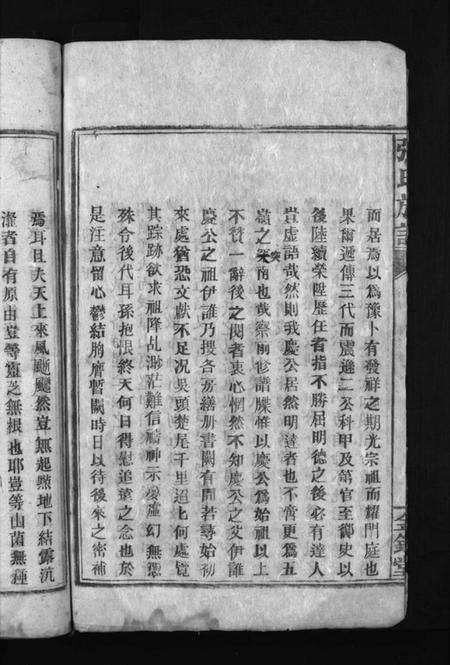 張氏族譜
金鑑堂
而居焉以爲豫卜有發祥之期光宗祖而耀門庭也
果爾遞傳三代而震遜二公科甲及第官至御史以
後陸續榮陞歷任者指不勝屈明德之後必有達人
豈虛語哉然則我慶公居然明達者也不啻更爲五
嶺之突南也哉察前世譜牒惟以慶公爲始祖以上
不贊一辭後之閱者衷心惘然不知慶公之父伊誰
慶公之祖伊誰乃搜各房繕册書闕有間若尋始初
來處猶恐文獻不足况吳頭楚尾千里迢上何處覽
其踪跡欲求祖降乩渺茫難信禱神示夢虛幻無憑
殊令後代耳孫抱恨終天何日得慰追遠之念也於
是注意留心鬱結胸膺暫闕時日以待後來之密補
焉耳且夫天上來風颺颺然豈無起點地下結露沆
瀣者自有原由豈等靈芝無根也耶豈等山菌無種